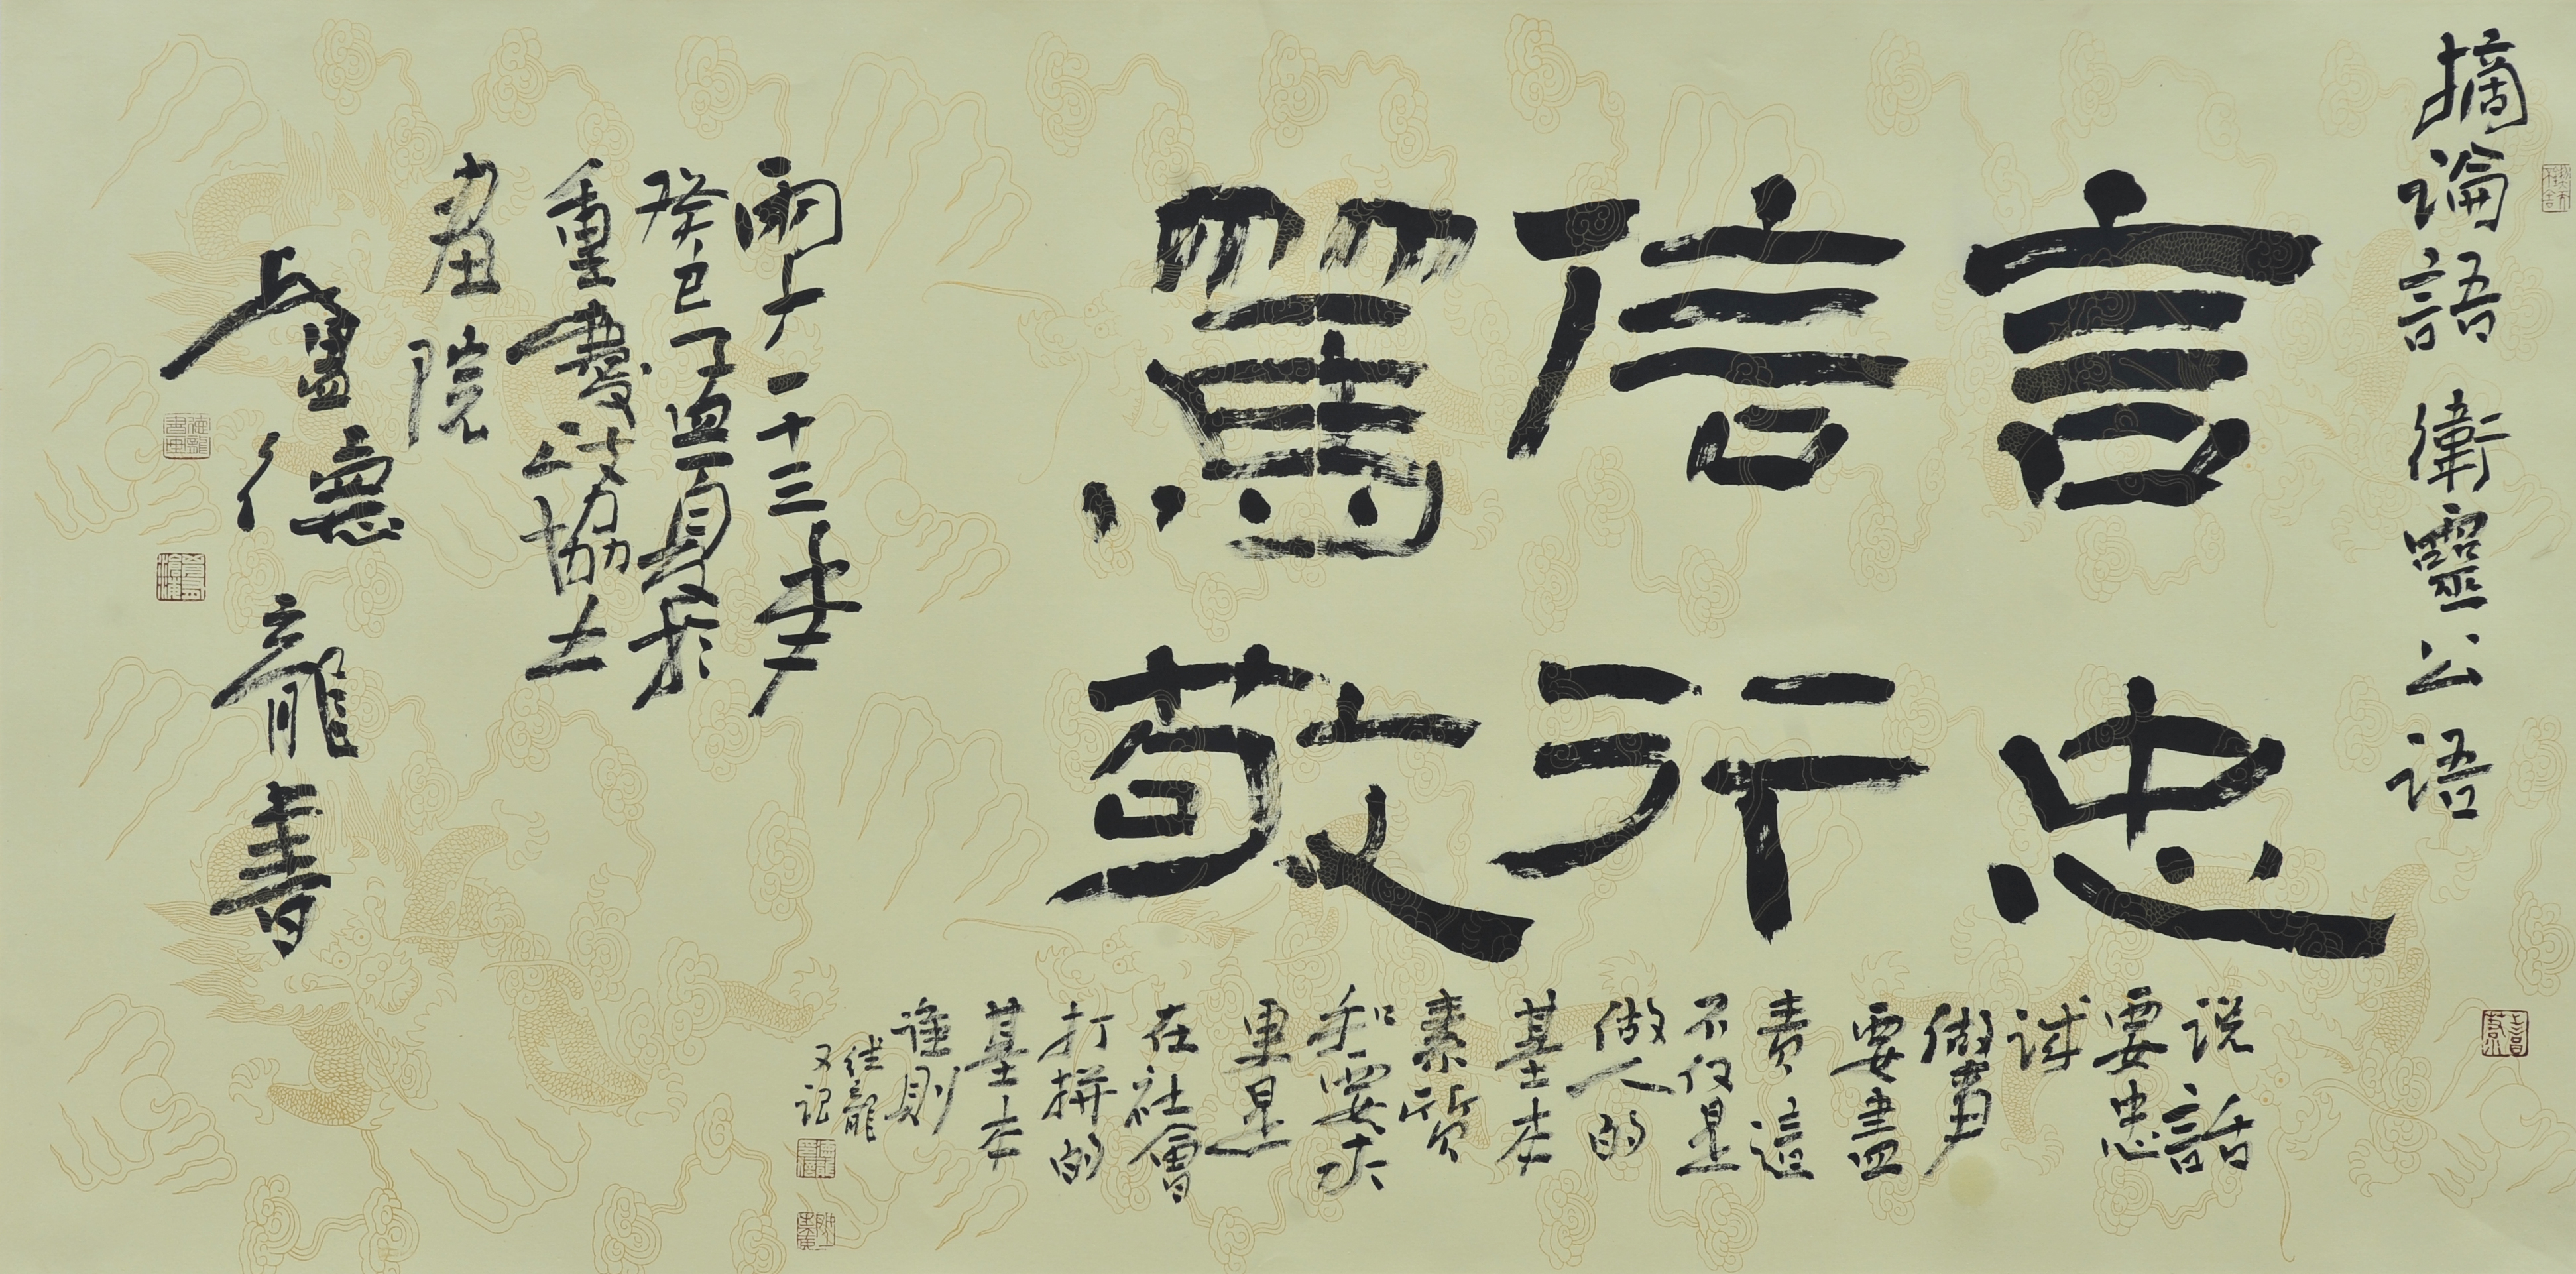 摘論語衛靈公語
言忠
信行
篤敬
说話
要忠
诚
做事
要盡
责這
不仅是
做人的
基本
素质
和要求
更是
在社會
打拼的
基本
準則
德龍
又记
二十三年
癸巳孟夏於
重慶政協
畫院
盧德龍書